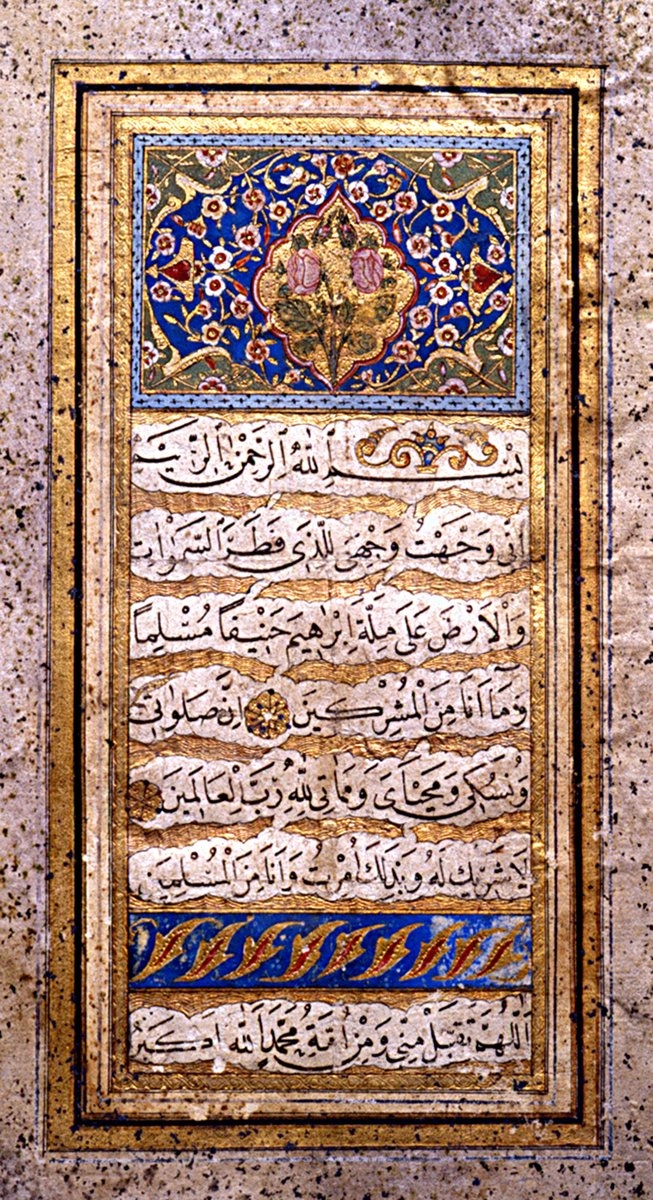 بِسْمِ اللهِ الرَّحْمٰنِ الرَّحِيْمِ
اِنّٖى وَجَّهْتُ وَجْهِىَ لِلَّذٖى فَطَرَ السَّمٰوَاتِ
وَالْاَرْضَ عَلٰى مِلَّةِ اِبْرٰهٖيمَ حَنٖيفًا مُسْلِمًا
وَمَا اَنَا مِنَ الْمُشْرِكٖينَ اِنَّ صَلَوٰتٖى
وَنُسُكٖى وَمَحْيَاىَ وَمَمَاتٖى لِلّٰهِ رَبِّ الْعَالَمٖينَ
لَا شَرٖيكَ لَهُ وَبِذٰلِكَ اُمِرْتُ وَاَنَا مِنَ الْمُسْلِمٖينَ
اَللّٰهُمَّ تَقَبَّلْ مِنّٖى وَمِنْ اُمَّةِ مُحَمَّدٍ اَللهُ اَكْبَرُ